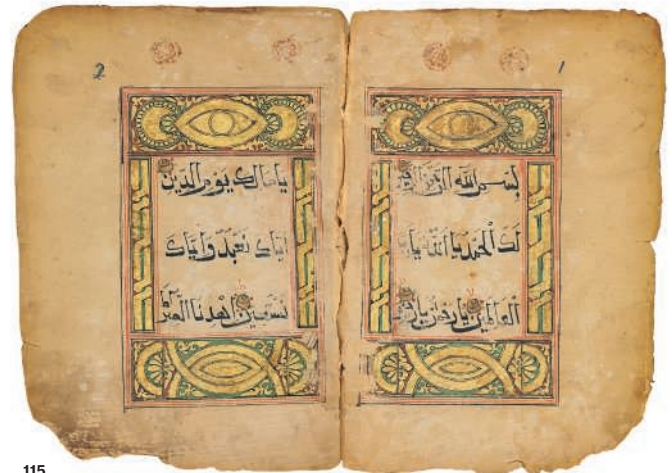 1
بسم الله الرحمن
لك الحمد يا الله يا
العالمين يا رحمن يا
2
يا مالك يوم الدين
اياك نعبد واياك
نستعين اهدنا الصراط
115